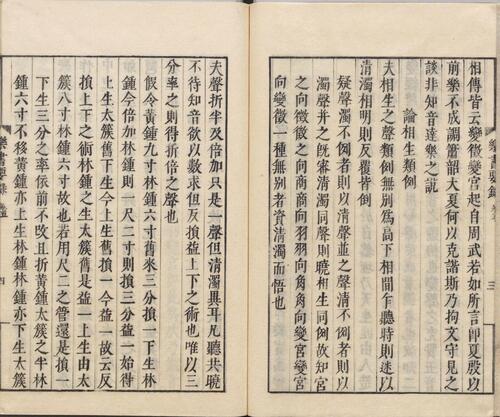 相傳皆云變徵變宮起自周武若如所言即夏殷以
前樂不成調簫韶大夏何以克諧斯乃拘文守見之
談非知音達樂之說
論相生類例
夫相生之聲類例無別為高下相間乍聽時則迷以
清濁相明則反覆皆倒
疑聲濁不例者則以清聲並之聲清不例者則以
濁聲并之既審清濁同聲則曉相生同例故知宮
之向徵徵之向商商向羽羽向角角向變宮變宮
向變徵一種無別者資清濁而悟也
樂書要錄
三
夫聲折半及倍加只是一聲但清濁異耳凡聽共曉
不待知音欲以數求但反損益上下之術也唯以三
分率之則得折倍之聲也
假令黃鍾九寸林鍾六寸舊來三分損一下生林
鍾今倍加林鍾則一尺二寸則損三分益一始得
上生太蔟舊下生今上生舊損一今益一故云反
損上下之術林鍾之生太蔟舊是益一上生由太
蔟八寸林鍾六寸故也若用尺二之管還是損一
下生三分之率依前不改且折黃鍾太蔟之半林
鍾六寸不移黃鍾亦上生林鍾林鍾亦下生太蔟
樂書要錄
四